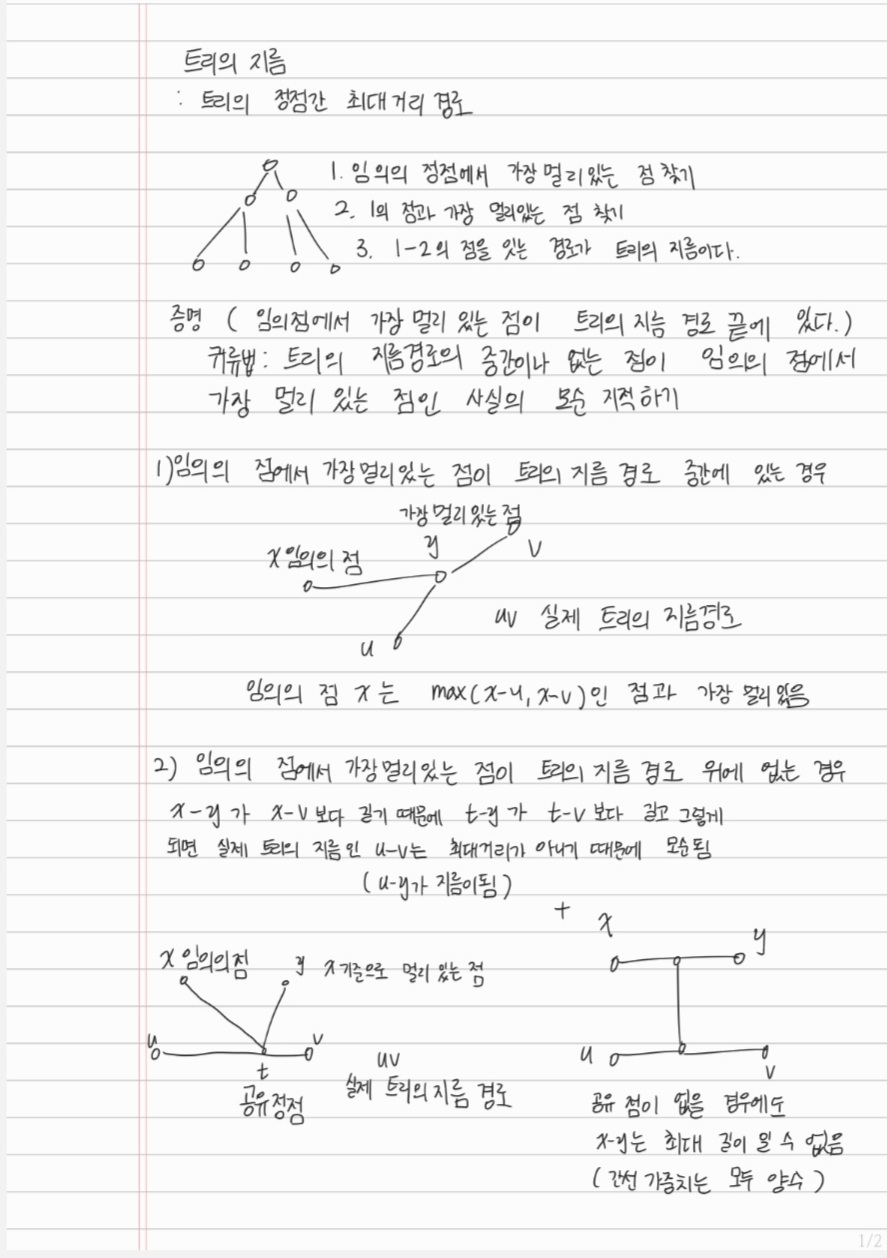 트리의 지름
: 트리의 정점간 최대거리 경로
1. 임의의 정점에서 가장 멀리있는 점 찾기
2. 1의 점과 가장 멀리있는 점 찾기
3. 1-2의 점을 잇는 경로가 트리의 지름이다.
증명 ( 임의점에서 가장 멀리 있는 점이 트리의 지름 경로 끝에 있다.)
귀류법 : 트리의 지름경로의 중간이나 없는 점이 임의의 점에서
가장 멀리 있는 점인 사실의 모순 지적하기
1)임의의 점에서 가장멀리있는 점이 트리의 지름 경로 중간에 있는 경우
가장 멀리 있는 점
x 임의의 점 y v
u uv 실제 트리의 지름경로
임의의 점 x는 max(x-u, x-v)인 점과 가장 멀리 있음
2) 임의의 점에서 가장멀리있는 점이 트리의 지름 경로 위에 없는 경우
x-y가 x-v보다 길기 때문에 t-y가 t-v보다 길고 그렇게
되면 실제 트리의 지름인 u-v는 최대거리가 아니기 때문에 모순됨
( u-y가 지름이됨 )
+ x y
x 임의의점 y x기준으로 멀리 있는 점
u v uv u v
t 실제 트리의 지름 경로
공유정점
공유 점이 없을 경우에도
x-y는 최대 길이 일 수 없음
( 간선 가중치는 모두 양수 )
1/2